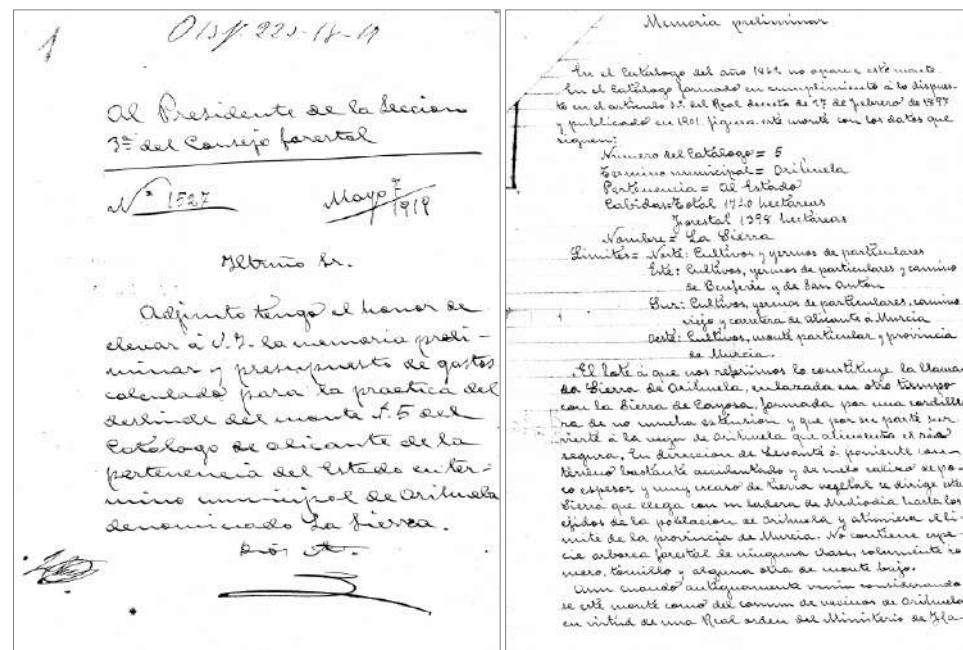 1
Al Presidente de la Seccion
3ª del Consejo forestal
Nº 1527
Mayo 7
1919
Iltrmo Sr.
Adjunto tengo el honor de
elevar á V.I. la memoria preli-
minar y presupuesto de gastos
calculado para la practica del
deslinde del monte nº 5 del
Catálogo de Alicante de la
pertenencia del Estado en tér-
mino municipal de Orihuela
denominado La Sierra.
Dios
Memoria preliminar
En el Catálogo del año 1862 no aparece este monte.
En el Catálogo formado en cumplimiento á lo dispues-
to en el artículo 3º del Real decreto de 27 de febrero de 1897
y publicado en 1901, figura este monte con los datos que
siguen:
Número del Catálogo = 5
Término municipal = Orihuela
Pertenencia = Al Estado
Cabidas = Total 1720 hectáreas
Forestal 1398 hectáreas
Nombre = La Sierra
Límites = Norte: Cultivos y yermos de particulares
Este: Cultivos, yermos de particulares y camino
de Benferri y de San Anton
Sur: Cultivos, yermos de particulares, camino
viejo y carretera de Alicante á Murcia
Oeste: Cultivos, monte particular y provincia
de Murcia.
El lote á que nos referimos lo constituye la llama-
da Sierra de Orihuela, enlazada en otro tiempo
con la Sierra de Callosa, formada por una cordille-
ra de no mucha extensión y que por su parte Sur
vierte á la vega de Orihuela que alimenta el río
Segura. En direccion de Levante á poniente con
terreno bastante accidentado y de suelo calizo de po-
co espesor y muy escaso de tierra vegetal se dirige esta
Sierra que llega con su ladera de Mediodia hasta los
ejidos de la poblacion de Orihuela y atraviesa el lí-
mite de la provincia de Murcia. No contiene espe-
cie arborea forestal de ninguna clase, solamente ro-
mero, tomillo y alguna otra de monte bajo.
Aun cuando antiguamente venía considerando
se este monte como del comun de vecinos de Orihuela
en virtud de una Real orden del Ministerio de Ha-